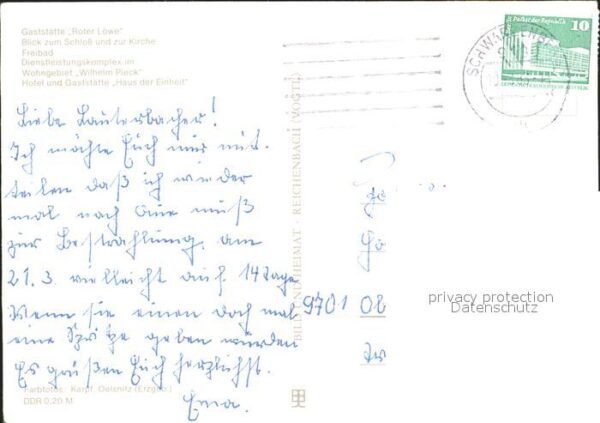 Gaststätte „Roter Löwe"
Blick zum Schloß und zur Kirche
Freibad
Dienstleistungskomplex im
Wohngebiet „Wilhelm Pieck"
Hotel und Gaststätte „Haus der Einheit"
Palast der Republik 10
Liebe Lauterbacher!
Ich möchte Euch nur mit-
teilen daß ich wieder
mal nach Aue muß
zur Bestrahlung, am
21.3. vielleicht auf 14 Tage
Wenn sie einen doch mal
eine Spritze geben würden
Es grüßen Euch herzlichst.
Erna.
BILD UND HEIMAT · REICHENBACH (VOGTL)
9701 Ob
privacy protection
Datenschutz
Farbfotos: Karpf, Oelsnitz (Erzgeb.)
DDR 0,20 M